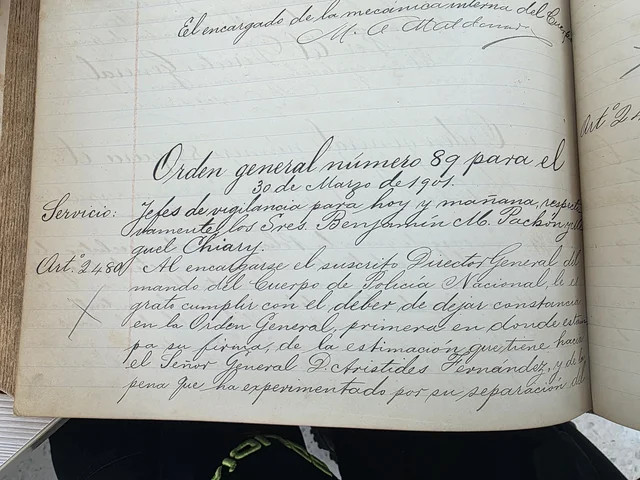 El encargado de la mecánica interna del Cuerpo
M. A. Maldonado
Orden general número 89 para el
30 de Marzo de 1901.
Servicio: Jefes de vigilancia para hoy y mañana, respecti-
vamente, los Sres. Benjamín M. Pachón y Mi
guel Chiary.
Art.º 2480 Al encargarse el suscrito Director General del
mando del Cuerpo de Policía Nacional, le es
grato cumplir con el deber de dejar constancia
en la Orden General, primera en donde estam
pa su firma, de la estimación que tiene hacia
el Señor General D. Arístides Fernández, y de la
pena que ha experimentado por su separación del
Art.º 2